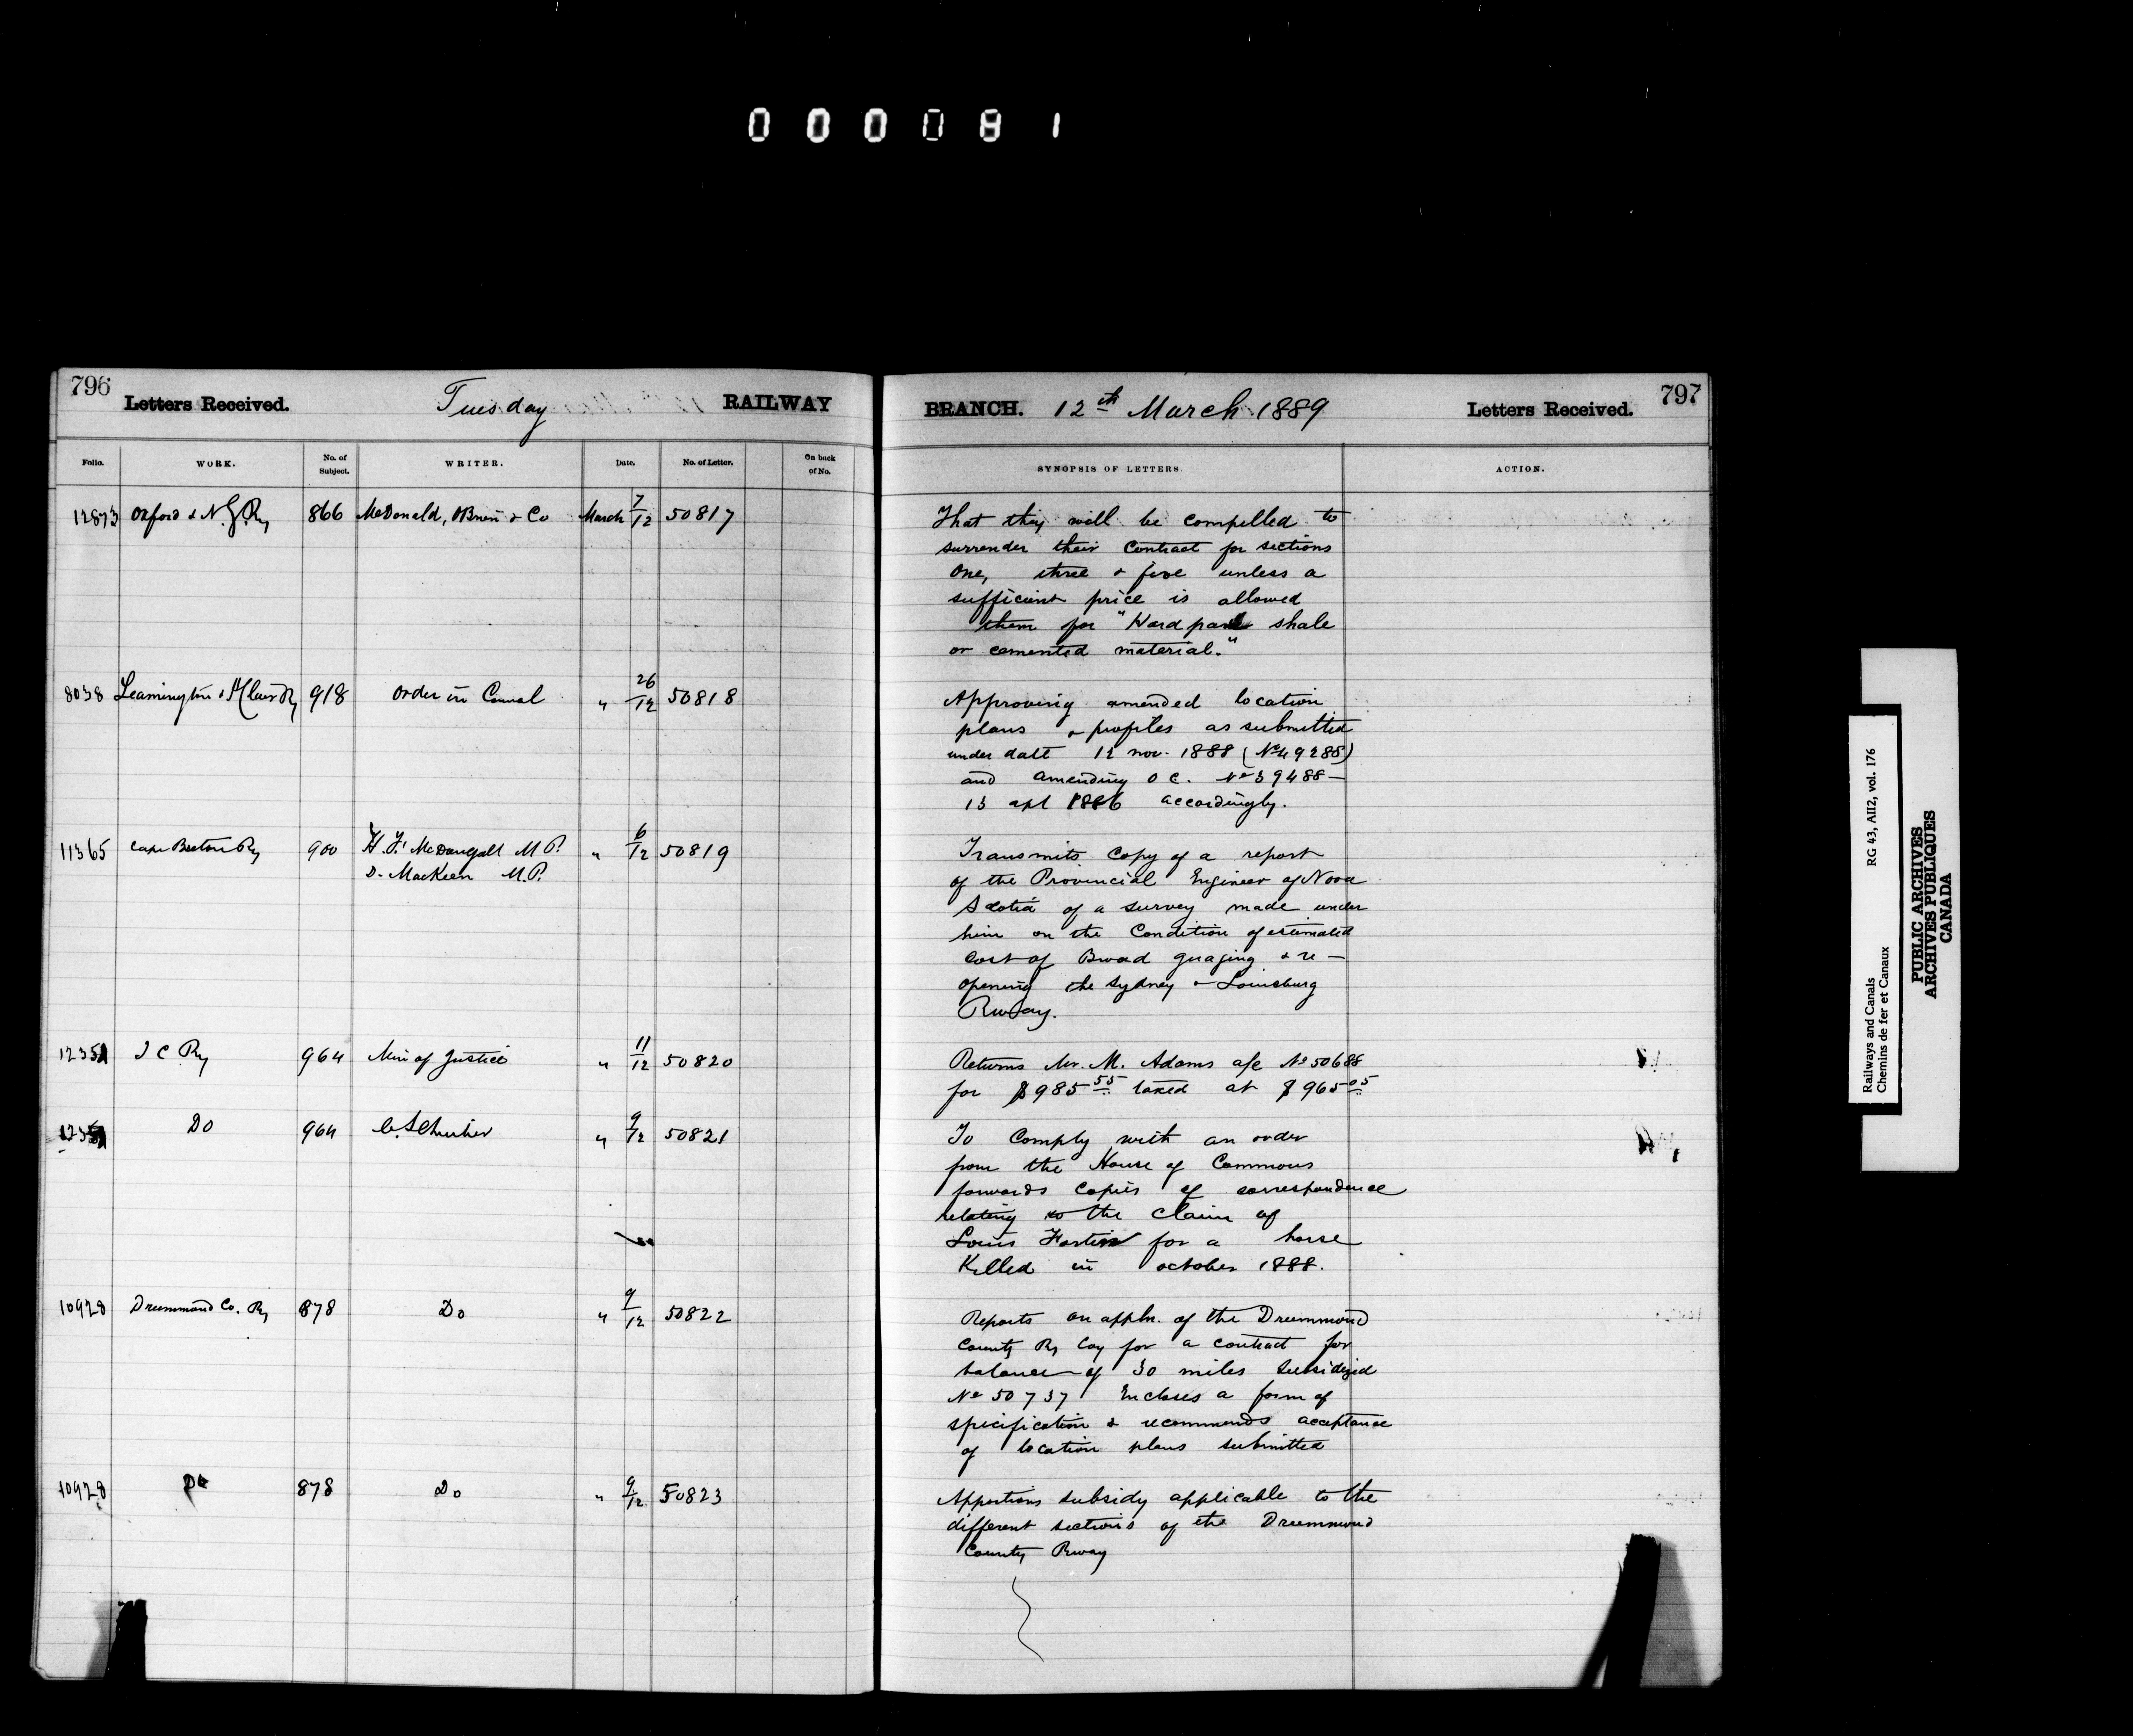 000091
796
Letters Received.
Tuesday
RAILWAY
BRANCH.
12th March 1889
Letters Received.
797
Folio.
WORK.
No. of Subject.
WRITER.
Date.
No. of Letter.
On back of No.
SYNOPSIS OF LETTERS.
ACTION.
12873 Oxford & N.G. Ry 866 McDonald, OBrien & Co March 7/12 50817
That they will be compelled to
surrender their Contract for sections
One, three & five unless a
sufficient price is allowed
them for "Hard pan shale
or cemented material."
8038 Leamington & St Clair Ry 918 Order in Council " 26/12 50818
Approving amended location
plans & profiles as submitted
under date 12 nov. 1888 (No 49288)
and amending O C. No 39488—
13 apl 1886 accordingly.
11365 Cape Breton Ry 900 H. F. McDougall M.P. " 6/12 50819
D. MacKeen M.P.
Transmits Copy of a report
of the Provincial Engineer of Nova
Scotia of a survey made under
him on the Condition of estimated
Cost of Broad guaging & re—
opening the Sydney & Louisburg
Rway.
1235 I C Ry 964 Min of Justice " 11/12 50820
Returns Mr. M. Adams a/c No 50688
for $985.55 taxed at $965.05
1235 Do 964 C. Schreiber " 9/12 50821
To Comply with an order
from the House of Commons
forwards Copies of correspondence
relating to the Claim of
Louis Fortin for a horse
Killed in october 1888.
10928 Drummond Co. Ry 878 Do " 9/12 50822
Reports on appln. of the Drummond
County Ry Coy for a contract for
balance of 30 miles subsidized
No 50737 Encloses a form of
specification & recommends acceptance
of location plans submitted
10928 Do 878 Do " 9/12 50823
Apportions subsidy applicable to the
different sections of the Drummond
County Rway
Railways and Canals RG 43, AII2, vol. 176
Chemins de fer et Canaux
PUBLIC ARCHIVES
ARCHIVES PUBLIQUES
CANADA